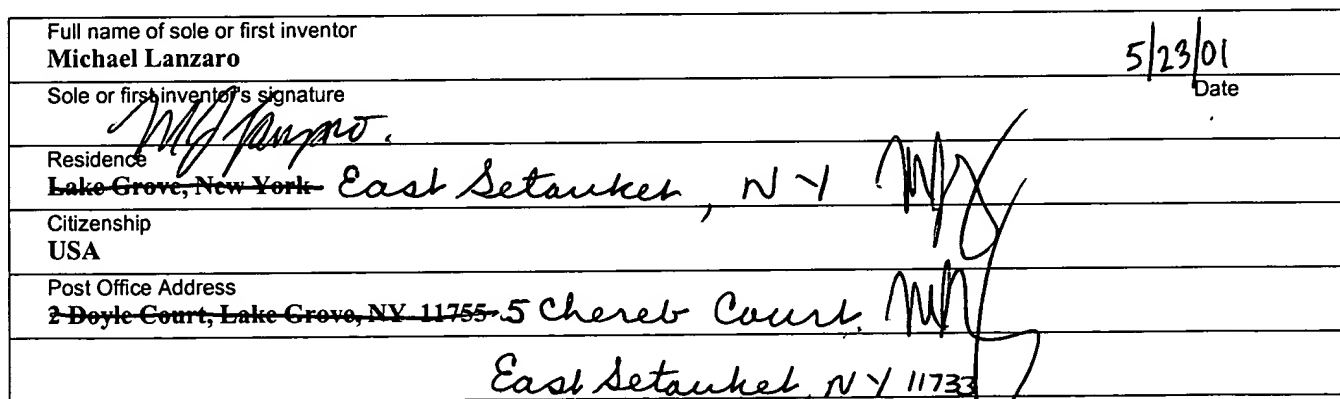 Full name of sole or first inventor
Michael Lanzaro
5/23/01
Date
Sole or first inventor's signature
Residence
Lake Grove, New York East Setauket, NY
Citizenship
USA
Post Office Address
2 Doyle Court, Lake Grove, NY 11755 5 Chereb Court
East Setauket, NY 11733